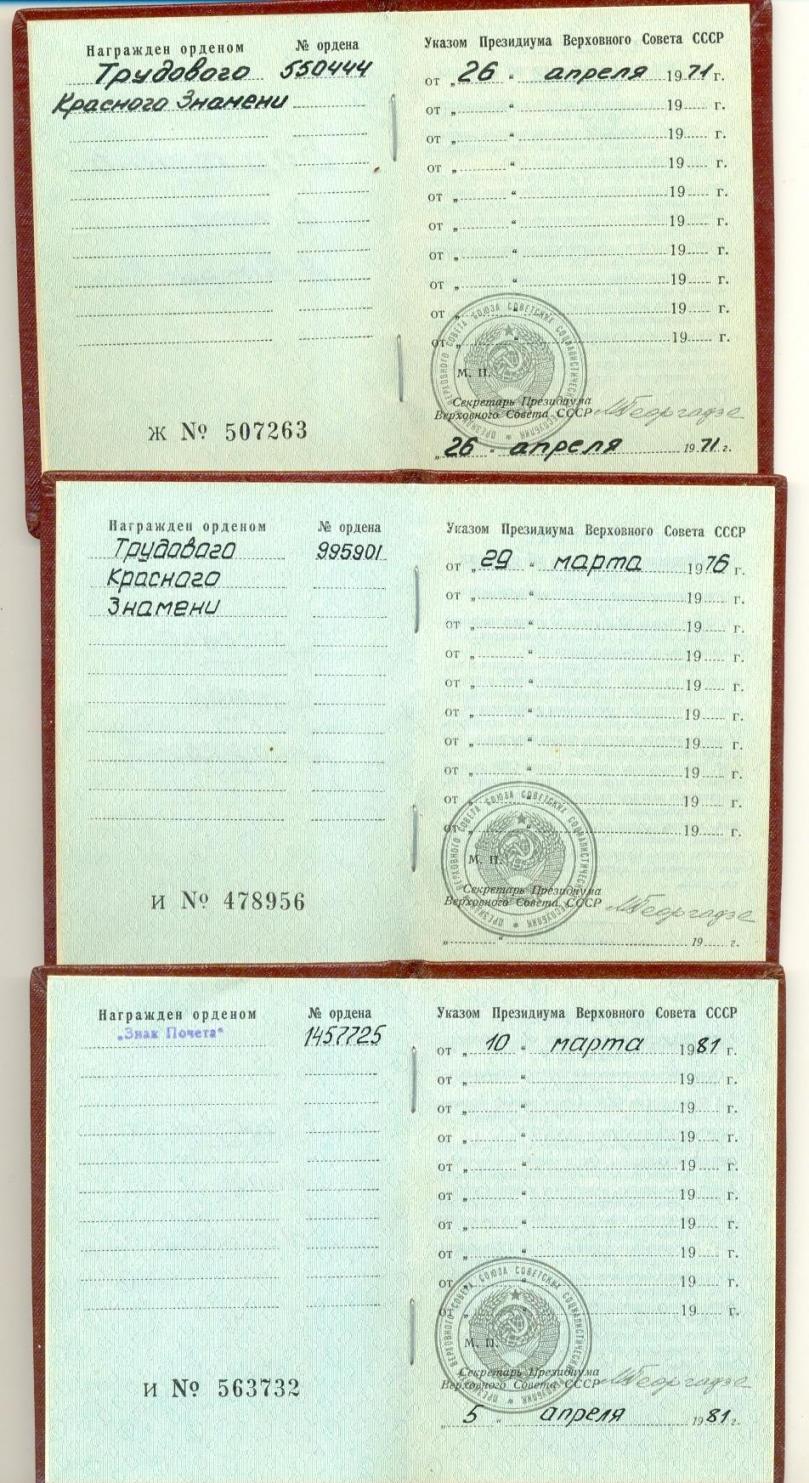 Награжден орденом № ордена
Трудового 550444
Красного Знамени
Ж № 507263
Указом Президиума Верховного Совета СССР
от „26“ апреля 1971 г.
от „ “ 19 г.
от „ “ 19 г.
от „ “ 19 г.
от „ “ 19 г.
от „ “ 19 г.
от „ “ 19 г.
от „ “ 19 г.
от „ “ 19 г.
от „ “ 19 г.
М. П.
Секретарь Президиума
Верховного Совета СССР МГеоргадзе
„26“ апреля 1971 г.
Награжден орденом № ордена
Трудового 995901
Красного
Знамени
И № 478956
Указом Президиума Верховного Совета СССР
от „29“ марта 1976 г.
от „ “ 19 г.
от „ “ 19 г.
от „ “ 19 г.
от „ “ 19 г.
от „ “ 19 г.
от „ “ 19 г.
от „ “ 19 г.
от „ “ 19 г.
от „ “ 19 г.
М. П.
Секретарь Президиума
Верховного Совета СССР МГеоргадзе
„ “ 19 г.
Награжден орденом № ордена
„Знак Почета“ 1457725
И № 563732
Указом Президиума Верховного Совета СССР
от „10“ марта 1981 г.
от „ “ 19 г.
от „ “ 19 г.
от „ “ 19 г.
от „ “ 19 г.
от „ “ 19 г.
от „ “ 19 г.
от „ “ 19 г.
от „ “ 19 г.
от „ “ 19 г.
М. П.
Секретарь Президиума
Верховного Совета СССР МГеоргадзе
„5“ апреля 1981 г.